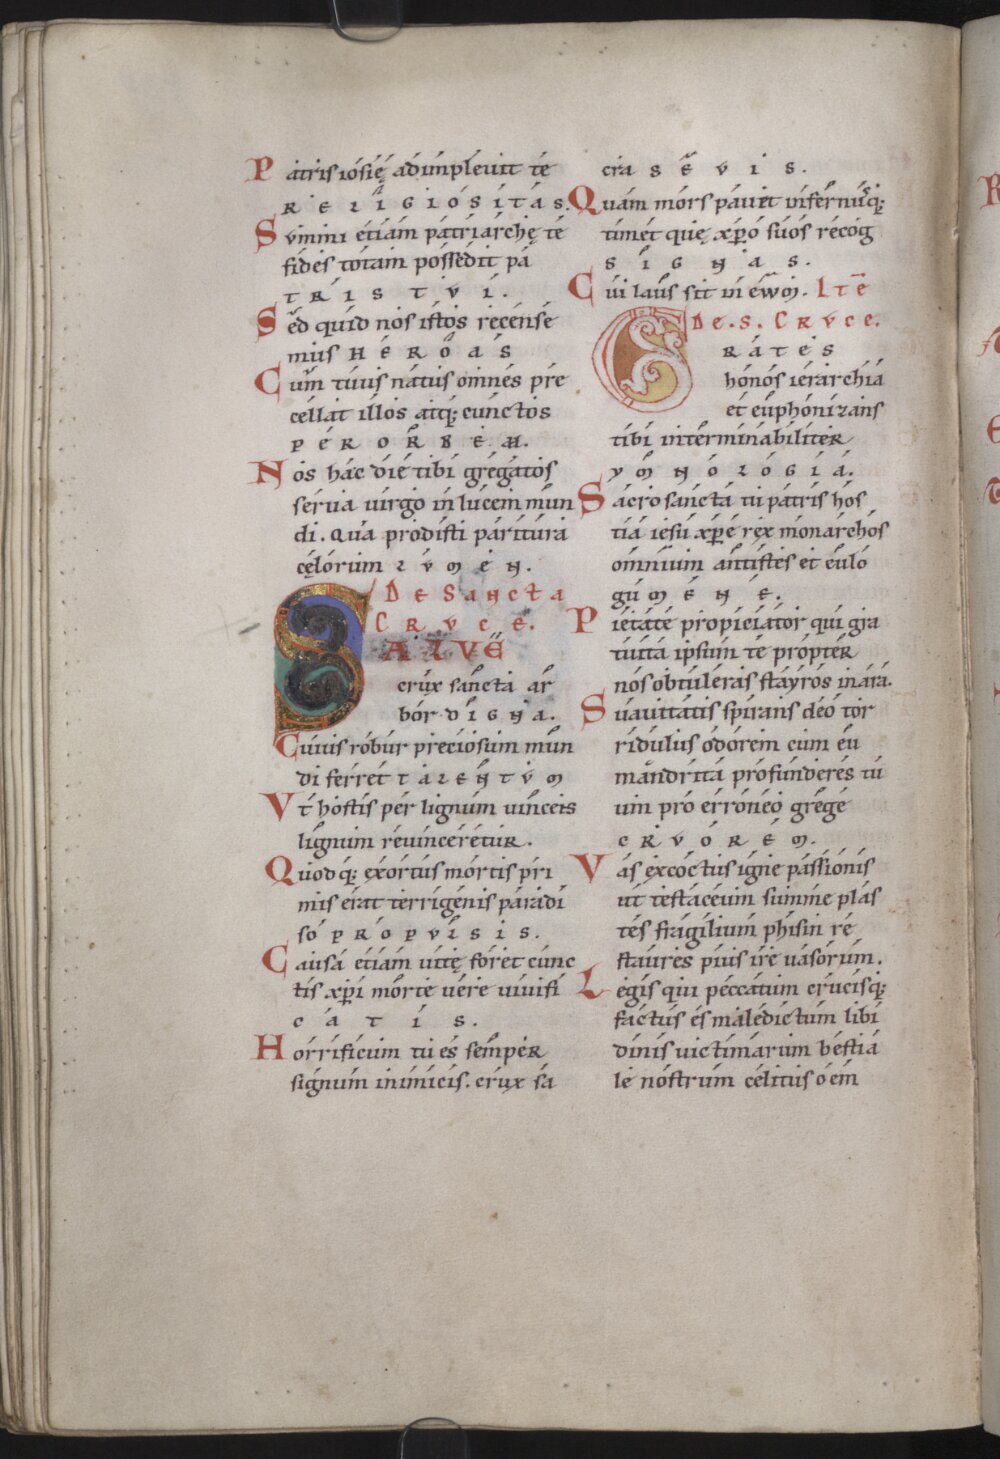 Patris iosię adimplevit te
RELIGIOSITAS.
Svmini etiam patriarchę te
fides totam possedit pa
TRIS TVI.
Sed quid nos istos recense
mus HEROAS
Cum tuus natus omnes pre
cellat illos atq; cunctos
PER ORBEM.
Nos hac die tibi gregatos
serua uirgo in lucem mun
di. Qua prodisti paritura
cęlorum LVMEN.
DE SANCTA
CRVCE.
SALVE
crux sancta ar
bor DIGNA.
Cuius robur preciosum mun
di ferret TALENTVM
Vt hostis per lignum uinceis
lignum reuinceretur.
Quodq; exortus mortis pri
mis erat terrigenis paradi
so PROPVLSIS.
Causa etiam uitę foret cunc
tis xp̄i morte uere uiuifi
CATIS.
Horrificum tu es semper
signum inimicis. crux sa
cra SEVIS.
Quam mors pauet infernusq;
timet quię xp̄o suos recog
SIGNAS.
Cui laus sit in ęwm. ITĒ
DE. S. CRVCE.
GRATES
honos ierarchia
et euphonizans
tibi interminabiliter
YMNOLOGIA.
Sacrosancta tu patris hos
tia iesu xp̄e rex monarchos
omnium antistes et eulo
guMENE.
Pietate propiciator qui gra
tuita ipsum te propter
nos obtuleras stayros in ara.
Suauitatis spirans deo tor
ridulus odorem cum eu
mandrita profunderes tu
um pro erroneo grege
CRVOREM.
Vas excoctus igne passionis
ut testaceum summe plas
tes fragilium phisin re
staures pius ire uasorum.
Legis qui peccatum crucisq;
factus es maledictum libi
dinis uictimarum bestia
le nostrum celitus oem